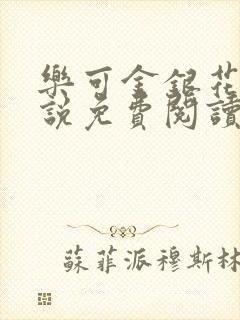 樂可金銀花
說免費閱讀
蘇菲派穆斯林